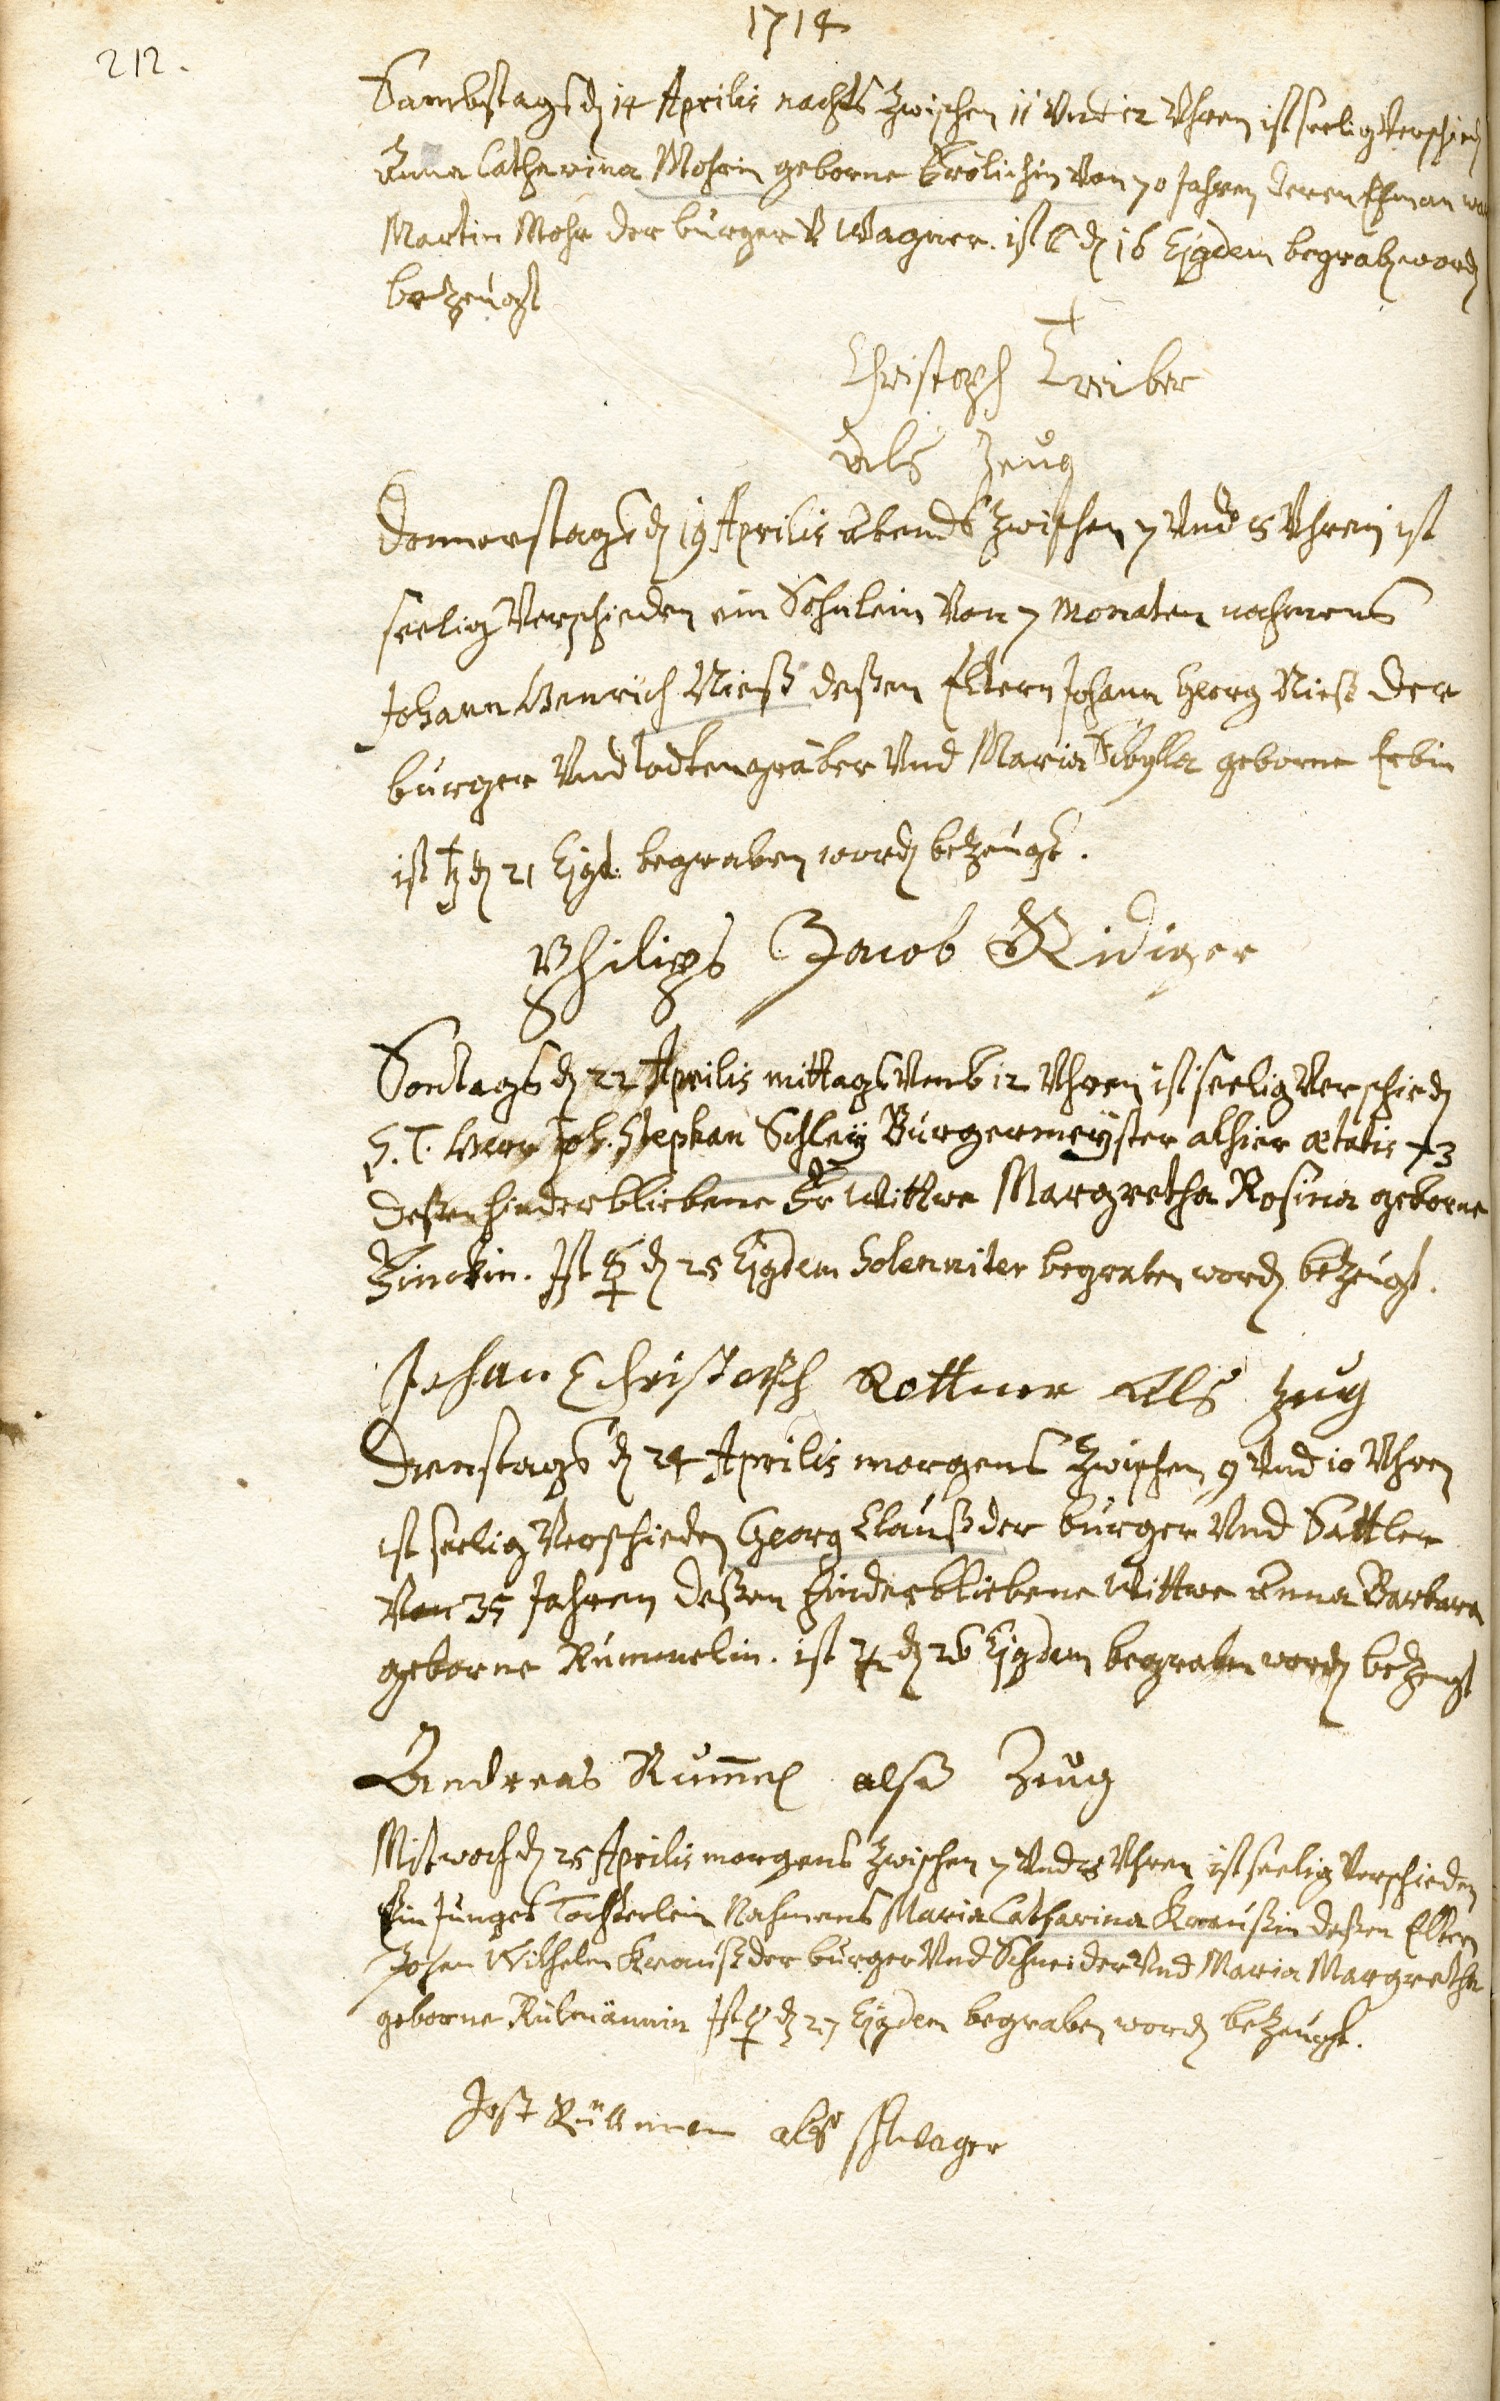 1714
212.
Sambstags dn 14 Aprilis nachts zwischen 11 Vnd 12 Uhren ist seelig Verschiedn
Anna Catharina Mohrin geborne Frölichin Von 70 Jahren deren Ehman war
Martin Mohr der burger V Wagner. ist ☾ dn 16 Ejgdem begrabn wordn
bezeugt
Christoph Treiber
als Zeug
Donnerstags dn 19 Aprilis Abends zwischen 7 Vnd 8 Uhren ist
seelig Verschieden ein Söhnlein Von 7 Monaten nahmens
Johann Henrich Nieß deßen Eltern Johann Georg Nieß der
burger Vnd todtengräber Vnd Maria Sibylla geborne Erbin
ist ♄ dn 21 Ejgd. begraben wordn bezeugt.
Philips Jacob Ridiger
Sontags dn 22 Aprilis mittags Vmb 12 Uhren ist seelig Verschiedn
S. T. Herr Joh. Stephan Schley Burgermeyster alhier ætatis 73
deßen hinderbliebene Fr Wittwe Margretha Rosina geborne
Zinckin. Ist ☿ dn 25 Ejgdem Solenniter begraben wordn bezeugt.
Johan Christoph Rottner als Zeug
Dienstags dn 24 Aprilis morgens zwischen 9 Vnd 10 Uhren
ist seelig Verschieden Georg Clauß der burger Vnd Sattler
Von 35 Jahren deßen hinderbliebene Wittwe Anna Barbara
geborne Rummelin. ist ♃ dn 26 Ejgdem begraben wordn bezeugt
Andreas Rum̅el alß Zeug
Mitwoch dn 25 Aprilis morgens zwischen 7 Vnd 8 Uhren ist seelig Verschieden
Ein Junges Töchterlein Nahmens Maria Catharina Kraußin deßen Eltern
Johan Wilhelm Krauß der burger Vnd Schneider Vnd Maria Margretha
geborne Rülmännin Ist ♀ dn 27 Ejgdem begraben wordn bezeugt.
Jost Rüllman alß schwager